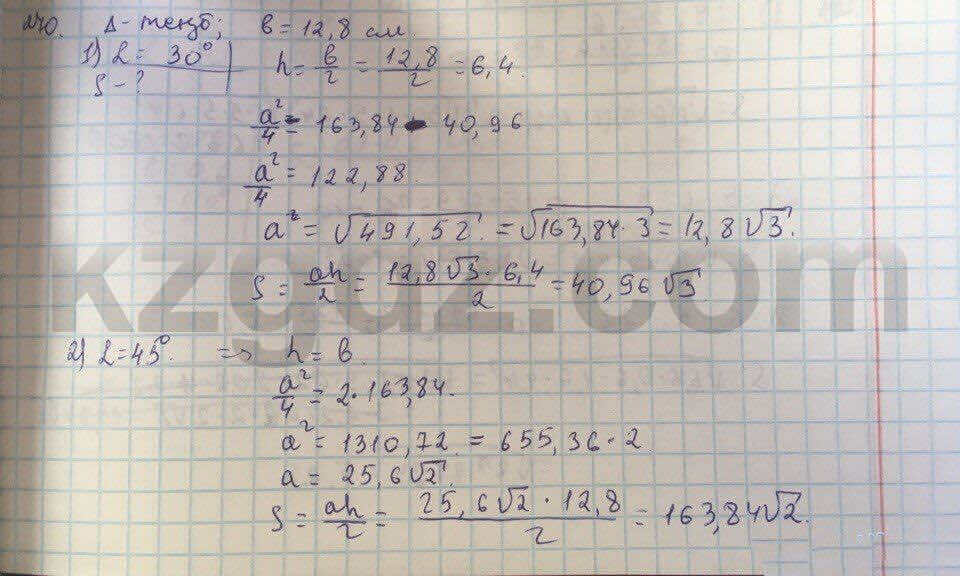 240. Δ-теңб; в = 12,8 см.
1) L = 30° h = в/2 = 12,8/2 = 6,4.
S - ?
a²/4 = 163,84 - 40,96
a²/4 = 122,88.
a² = √491,52. = √163,84·3 = 12,8√3.
S = ah/2 = 12,8√3·6,4/2 = 40,96√3
kzgdz.com
2) L = 45°. => h = в.
a²/4 = 2·163,84.
a² = 1310,72. = 655,36·2
a = 25,6√2.
S = ah/2 = 25,6√2·12,8/2 = 163,84√2.